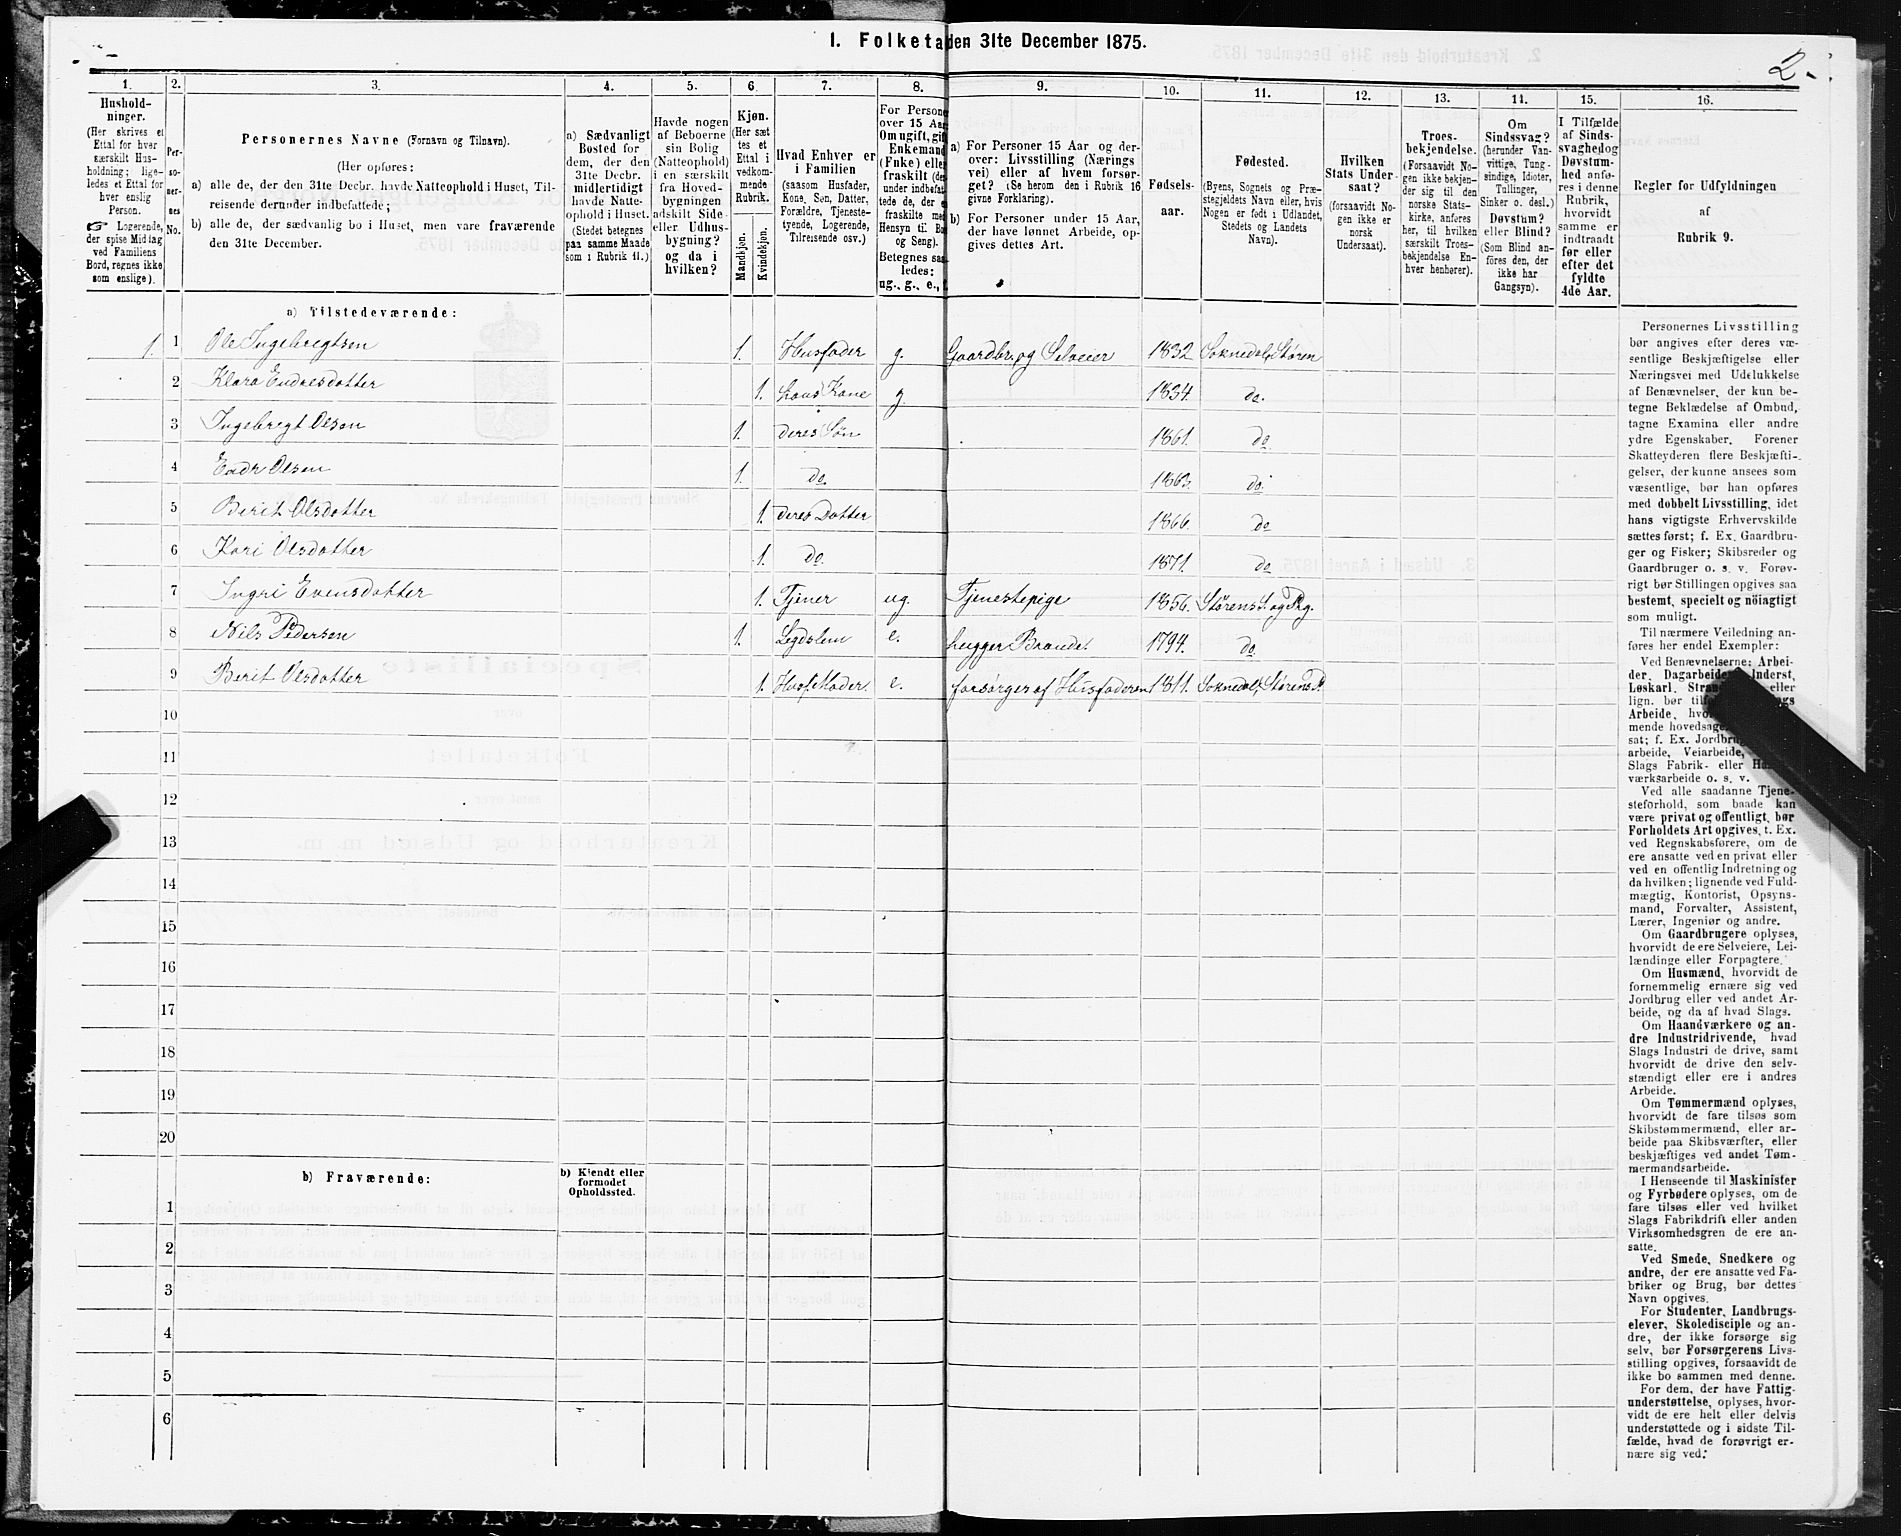 I. Folketa den 31te December 1875.
2.
1. 2. 3. 4. 5. 6. 7. 8. 9. 10. 11. 12. 13. 14. 15. 16.
Hushold-
ninger.
(Her skrives et
Ettal for hver
særskilt Hus-
holdning; lige-
ledes et Ettal for
hver enslig
Person.
☞ Logerende,
der spise Middag
ved Familiens
Bord, regnes ikke
som enslige).
Per-
so-
ner-
nes
No.
Personernes Navne (Fornavn og Tilnavn).
(Her opføres:
a) alle de, der den 31te Decbr. havde Natteophold i Huset, Til-
reisende derunder indbefattede;
b) alle de, der sædvanlig bo i Huset, men vare fraværende
den 31te December.
a) Sædvanligt
Bosted for
dem, der den
31te Decbr.
midlertidigt
havde Natte-
ophold i Huset.
(Stedet betegnes
paa samme Maade
som i Rubrik 11.)
Havde nogen
af Beboerne
sin Bolig
(Natteophold)
i en særskilt
fra Hoved-
bygningen
adskilt Side-
eller Udhus-
bygning?
og da i
hvilken?
Kjøn.
(Her sæt-
tes et
Ettal i
vedkom-
mende
Rubrik.
Mandkjøn.
Kvindekjøn.
Hvad Enhver er
i Familien
(saasom Husfader,
Kone, Søn, Datter,
Forældre, Tjeneste-
tyende, Logerende,
Tilreisende osv.)
For Persone
over 15 Aar
Om ugift, gift
Enkemand
(Enke) eller
fraskilt (der
under indbefat
tede de, der e
fraskilte med
Hensyn til Bo
og Seng).
Betegnes saa
ledes:
ug., g., e., f.
a) For Personer 15 Aar og der-
over: Livsstilling (Nærings
vei) eller af hvem forsør-
get? (Se herom den i Rubrik 16
givne Forklaring).
b) For Personer under 15 Aar,
der have lønnet Arbeide, op-
gives dettes Art.
Fødsels-
aar.
Fødested.
(Byens, Sognets og Præ-
stegjeldets Navn eller, hvis
Nogen er født i Udlandet,
Stedets og Landets
Navn).
Hvilken
Stats Under
saat?
(forsaavidt No-
gen ikke er
norsk
Undersaat).
Troes-
bekjendelse.
(Forsaavidt No-
gen ikke bekjen-
der sig til den
norske Stats-
kirke, anføres
her, til hvilken
særskilt Troes-
bekjendelse En-
hver henhører).
Om
Sindssvag?
(herunder Van-
vittige, Tung-
sindige, Idioter,
Tullinger,
Sinker o. desl.)
Døvstum?
eller Blind?
(Som Blind an-
føres den, der
ikke har
Gangsyn).
I Tilfælde
af Sinds-
svaghed og
Døvstum-
hed anfø-
res i denne
Rubrik,
hvorvidt
samme er
indtraadt
før eller
efter det
fyldte
4de Aar.
Regler for Udfyldningen
af
Rubrik 9.
a) Tilstedeværende:
1. 1 Ole Ingebregtsen 1. Husfader g. Gaardbr. og Selveier 1832 Soknedal, Støren
2 Klara Endresdotter 1. hans Kone g. 1834. do.
3 Ingebregt Olsen 1. deres Søn 1861. do
4 Endr Olsen 1. do. 1863. do
5 Berit Olsdotter 1. deres Datter 1866. do
6 Kari Olsdotter 1. do. 1871. do
7 Ingri Evensdotter 1. Tjener ug. Tjenestepige 1856. Størens S. og Prg.
8 Nils Pedersen 1. Legdslem e. hugger Brændet 1794. do.
9 Berit Olsdotter 1. Husf. Moder. e. forsørges af Husfaderen 1811. Soknedal, Størens P.
10
11
12
13
14
15
16
17
18
19
20
b) Fraværende:
b) Kjendt eller
formodet
Opholdssted.
1
2
3
4
5
6
Personernes Livsstilling
bør angives efter deres væ-
sentlige Beskjæftigelse eller
Næringsvei med Udelukkelse
af Benævnelser, der kun be-
tegne Beklædelse af Ombud,
tagne Examina eller andre
ydre Egenskaber. Forener
Skatteyderen flere Beskjæfti-
gelser, der kunne ansees som
væsentlige, bør han opføres
med dobbelt Livsstilling, idet
hans vigtigste Erhvervskilde
sættes først; f. Ex. Gaardbru-
ger og Fisker; Skibsreder og
Gaardbruger o. s. v. Forøv-
rigt bør Stillingen opgives saa
bestemt, specielt og nöiagtigt
som muligt.
Til nærmere Veiledning an-
føres her endel Exempler:
Ved Benævnelserne: Arbei-
der, Dagarbeider, Inderst,
Løskarl, Stran eller
lign. bør tilf gs
Arbeide, hvo
mende hovedsage
sat; f. Ex. Jordbru
arbeide, Veiarbeide,
Slags Fabrik- eller Ha
værksarbeide o. s. v.
Ved alle saadanne Tjene-
steforhold, som baade kan
være privat og offentligt, bør
Forholdets Art opgives, t. Ex.
ved Regnskabsførere, om de
ere ansatte ved en privat eller
ved en offentlig Indretning og
da hvilken; lignende ved Fuld-
mægtig, Kontorist, Opsyns-
mand, Forvalter, Assistent,
Lærer, Ingeniør og andre.
Om Gaardbrugere oplyses,
hvorvidt de ere Selveiere, Lei-
lændinge eller Forpagtere.
Om Husmænd, hvorvidt de
fornemmelig ernære sig ved
Jordbrug eller ved andet Ar-
beide, og da af hvad Slags.
Om Haandværkere og an-
dre Industridrivende, hvad
Slags Industri de drive, samt
hvorvidt de drive den selv-
stændigt eller ere i andres
Arbeide.
Om Tømmermænd oplyses,
hvorvidt de fare tilsøs som
Skibstømmermænd, eller ar-
beide paa Skibsværfter, eller
beskjæftiges ved andet Tøm-
mermandsarbeide.
I Henseende til Maskinister
og Fyrbødere oplyses, om de
fare tilsøs eller ved hvilket
Slags Fabrikdrift eller anden
Virksomhedsgren de ere an-
satte.
Ved Smede, Snedkere og
andre, der ere ansatte ved Fa-
briker og Brug, bør dettes
Navn opgives.
For Studenter, Landbrugs-
elever, Skoledisciple og an-
dre, der ikke forsørge sig
selv, bør Forsørgerens Livs-
stilling opgives, forsaavidt de
ikke bo sammen med denne.
For dem, der have Fattig-
understøttelse, oplyses, hvor-
vidt de ere helt eller delvis
understøttede og i sidste Til-
fælde, hvad de forøvrigt er-
nære sig ved.